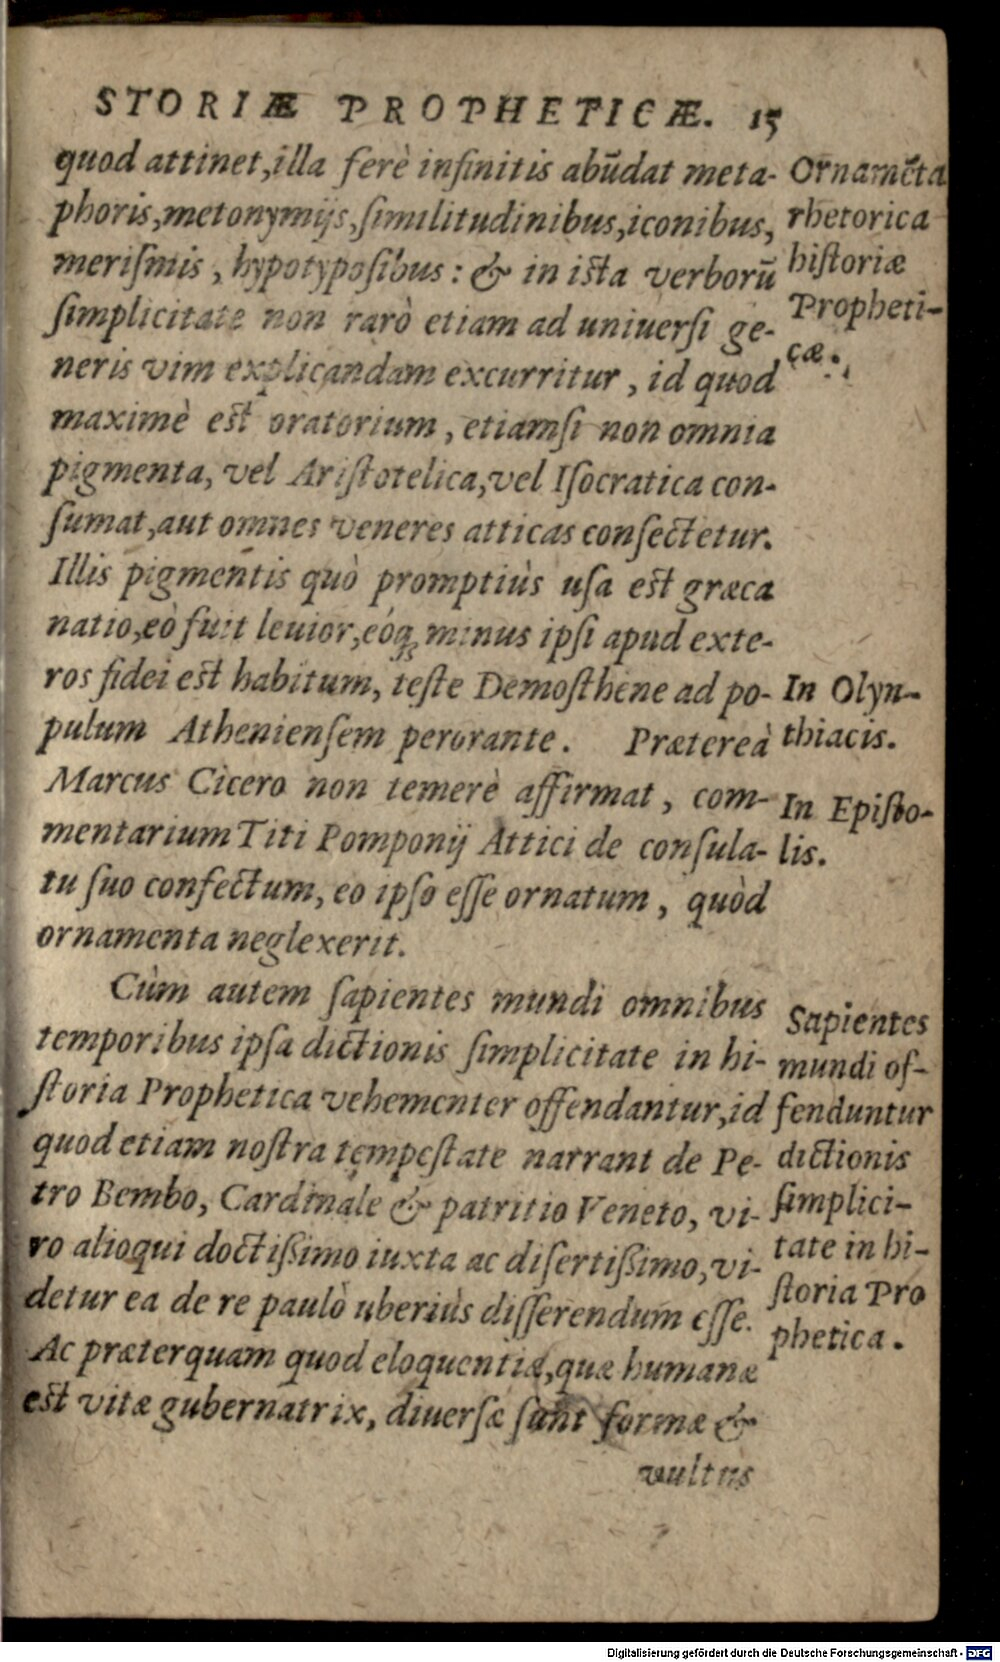 STORIÆ PROPHETICÆ. 15
quod attinet,illa ferè infinitis abũdat meta-
phoris,metonymijs,ſimilitudinibus,iconibus,
meriſmis, hypotypoſibus: & in iſta verborũ
ſimplicitate non rarò etiam ad uniuerſi ge-
neris vim explicandam excurritur, id quod
maximè eſt oratorium, etiamſi non omnia
pigmenta, vel Ariſtotelica,vel Iſocratica con-
ſumat,aut omnes veneres atticas conſectetur.
Illis pigmentis quò promptiùs uſa eſt græca
natio,eò fuit leuior,eóq; minus ipſi apud exte-
ros fidei eſt habitum, teſte Demoſthene ad po-
pulum Athenienſem perorante. Prætereà
Marcus Cicero non temerè affirmat, com-
mentarium Titi Pomponij Attici de conſula-
tu ſuo confectum, eo ipſo eſſe ornatum, quòd
ornamenta neglexerit.
Cùm autem ſapientes mundi omnibus
temporibus ipſa dictionis ſimplicitate in hi-
ſtoria Prophetica vehementer offendantur,id
quod etiam noſtra tempeſtate narrant de Pe-
tro Bembo, Cardinale & patritio Veneto, vi-
ro alioqui doctiſſimo iuxta ac diſertiſſimo,vi-
detur ea de re paulò uberiùs diſſerendum eſſe.
Ac præterquam quod eloquentiæ,quæ humanæ
eſt vitæ gubernatrix, diuerſæ ſunt formæ &
vultus
Ornamẽta
rhetorica
hiſtoriæ
Propheti-
cæ.
In Olyn-
thiacis.
In Epiſto-
lis.
Sapientes
mundi of-
fenduntur
dictionis
ſimplici-
tate in hi-
ſtoria Pro
phetica.
Digitalisierung gefördert durch die Deutsche Forschungsgemeinschaft - DFG